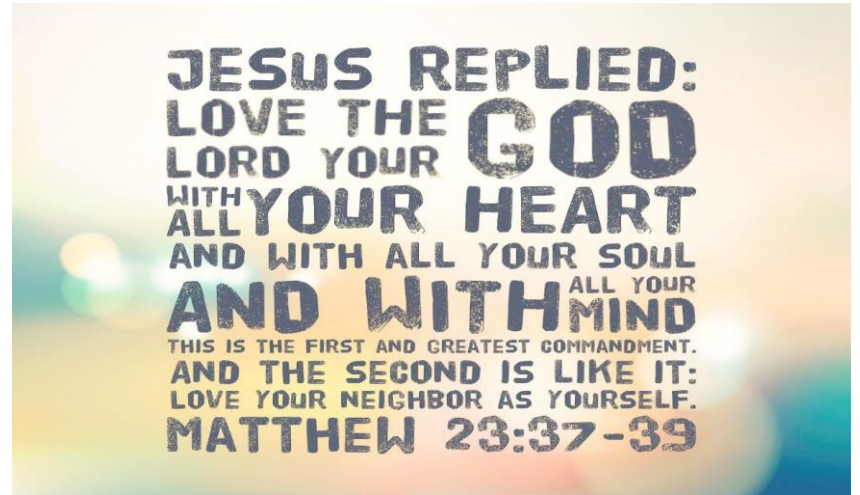 JESUS REPLIED:
LOVE THE
LORD YOUR GOD
WITH
ALL YOUR HEART
AND WITH ALL YOUR SOUL
AND WITH ALL YOUR
MIND
THIS IS THE FIRST AND GREATEST COMMANDMENT.
AND THE SECOND IS LIKE IT:
LOVE YOUR NEIGHBOR AS YOURSELF.
MATTHEW 23:37-39